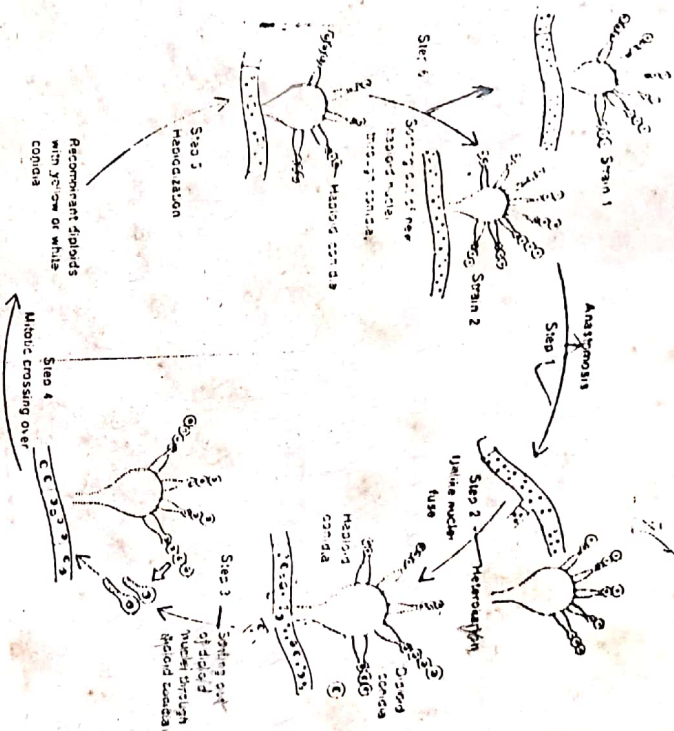 Strain 1
Strain 2
Anastomosis
Step 1
Step 2
Unlike nuclei
fuse
Heterokaryon
Haploid
conidia
Diploid
conidia
Step 3
Sorting out
of diploid
nuclei through
diploid conidia
Step 4
Mitotic crossing over
Recombinant diploids
with yellow or white
conidia
Step 5
Haploidization
Haploid conidia
Step 6
Sorting out of new
haploid nuclei
through conidia